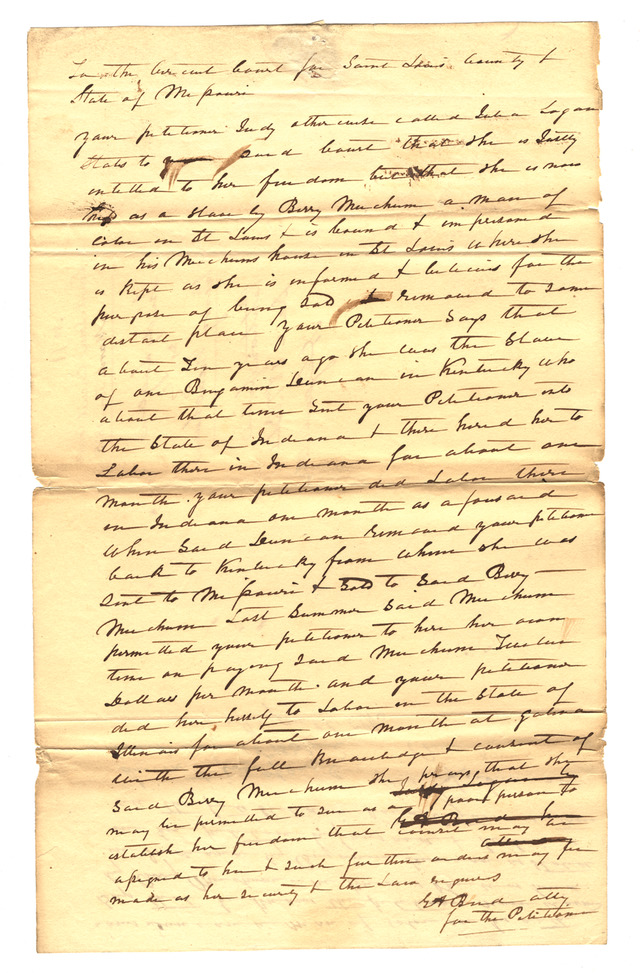 To the Circuit Court for Saint Louis County &
State of Missouri
your petitioner Judy otherwise called Julia Logan
States to said Court that she is Justly
intitled to her freedom but that she is now
kept as a Slave by Berry Meachum a man of
Color in St Louis & is bound & imprisoned
in his Meachums house in St Louis where she
is kept as she is informed & believes for the
purpose of being Sold & removed to some
distant place your Petitioner Says that
about Ten years ago she was the Slave
of one Benjamin Duncan in Kentucky who
about that time Sent your Petitioner into
the State of Indiana & there hired her to
Labor there in Indiana for about one
month. your petitioner did Labor there
in Indiana one month as aforesaid
When Said Duncan removed your petitioner
back to Kentucky from whence she was
Sent to Missouri & Sold to Said Berry
Meachum Last Summer Said Meachum
permitted your petitioner to hire her own
time on paying Said Meachum Twelve
Dollars per month. and your petitioner
did hire herself to Labor in the State of
Illinois for about one month at Galena
with the full Knowledge & consent of
Said Berry Meachum She prays that she
may be permitted to sue as a poor person to
establish her freedom that Council may be
assigned to her & such further orders may be
made as her security & the Law requires
atty
for the Petitioner